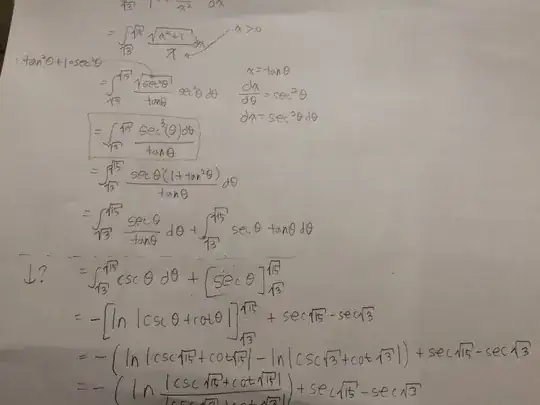 = ∫_√3^√15 √(x²+1)/x dx ← x>0
: tan²θ+1=sec²θ
= ∫_√3^√15 √(sec²θ)/tanθ sec²θ dθ
x=tanθ
dx/dθ=sec²θ
dx=sec²θdθ
= ∫_√3^√15 sec³(θ)dθ/tanθ
= ∫_√3^√15 secθ(1+tan²θ)/tanθ dθ
= ∫_√3^√15 secθ/tanθ dθ + ∫_√3^√15 secθ tanθ dθ
↓? = ∫_√3^√15 cscθ dθ + [secθ]_√3^√15
= -[ln|cscθ+cotθ|]_√3^√15 + sec√15-sec√3
= -(ln|csc√15+cot√15|-ln|csc√3+cot√3|)+sec√15-sec√3
= -(ln |csc√15+cot√15|/|csc√3+cot√3|)+sec√15-sec√3